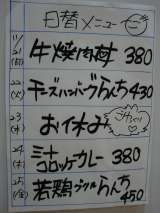 日替メニュー
11/21(月) 牛焼肉丼 380
22(火) チーズハンバーグらんち 430
23(水) お休み
24(木) ミニコロッケカレー 380
25(金) 若鶏グリルらんち 450